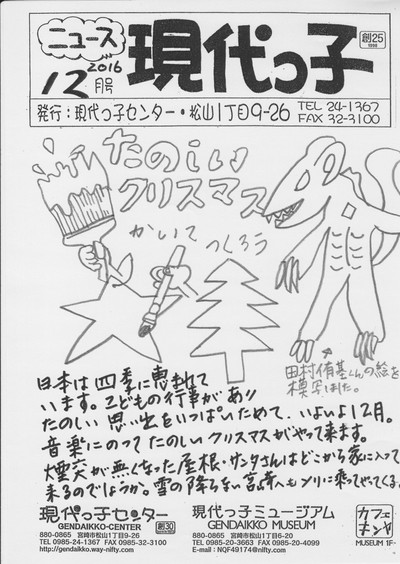 ニュース
2016
12月号
現代っ子
創25
1998
発行:現代っ子センター・松山1丁目9-26
TEL 24-1367
FAX 32-3100
たのしい
クリスマス
かいて つくろう
田村侑基くんの絵を
模写しました。
日本は四季に恵まれて
います。こどもの行事があり
たのしい思い出をいっぱいためて、いよいよ12月。
音楽にのってたのしいクリスマスがやって来ます。
煙突が無くなった屋根・サンタさんはどこから家に入って
来るのでしょうか。雪の降らない宮崎へもソリに乗ってやってくる。
現代っ子センター
GENDAIKKO-CENTER
創30
880-0865 宮崎市松山1丁目9-26
TEL 0985-24-1367 FAX 0985-32-3100
http://gendaikko.way-nifty.com/
現代っ子ミュージアム
GENDAIKKO MUSEUM
880-0865 宮崎市松山1丁目6-20
TEL 0985-20-3663 FAX 0985-20-4099
E-mail : NQF49174@nifty.com
カフェ
MUSEUM 1F-